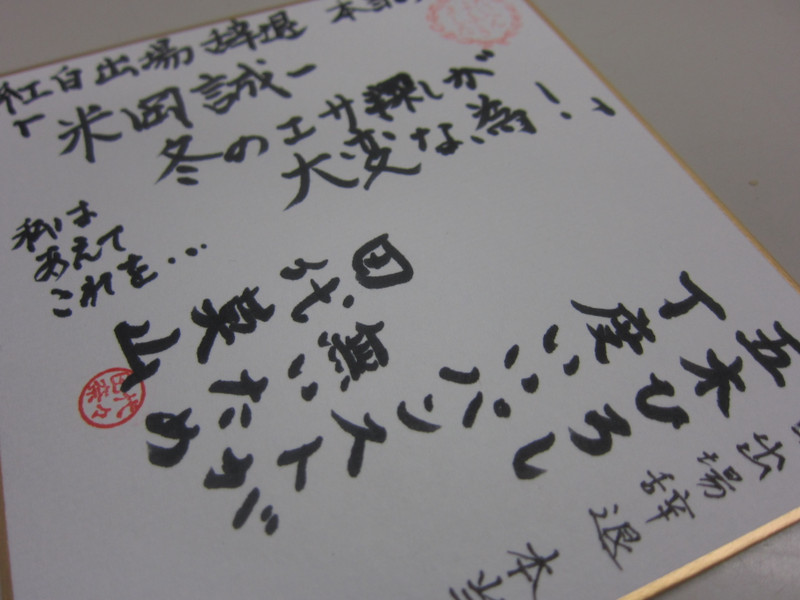 紅白出場辞退 本当
「米岡誠一
冬のエサ探しが
大変な為!」
私は
あえて
これを...
出場辞退 本当
五木ひろし
丁度いいパンストが
無いため
田代莫山